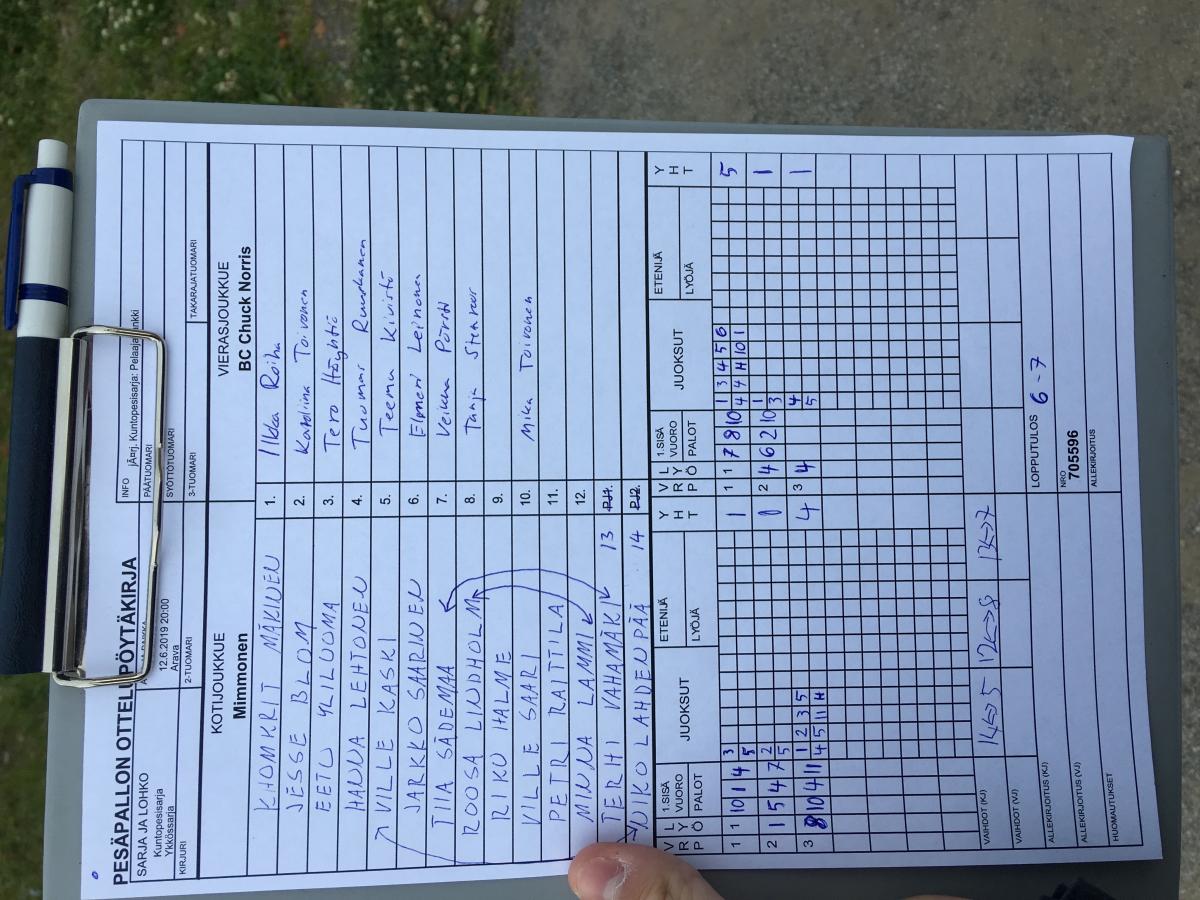 PESÄPALLON OTTELUPÖYTÄKIRJA
SARJA JA LOHKO
Kuntopesisarja
Ykkössarja
12.6.2019 20:00
Arava
INFO
Kuntopesisarja:
KIRJURI
2-TUOMARI
PÄÄTUOMARI
SYÖTTÖTUOMARI
3-TUOMARI
TAKARAJATUOMARI
KOTIJOUKKUE
Mimmonen
VIERASJOUKKUE
BC Chuck Norris
KHOMKRIT MÄKINEN 1. Ilkka Roiha
JESSE BLOM 2. Katariina Toivonen
EETU YLILUOMA 3. Tero Häyhtiö
HANNA LEHTONEN 4. Tuomas Ruuskanen
VILLE KASKI 5. Teemu Kivistö
JARKKO SAARINEN 6. Elmeri Leinonen
TIIA SADEMAA 7. Veikka Pörsti
ROOSA LINDHOLM 8. Tanja
RIKU HALME 9.
VILLE SAARI 10. Mika Toivonen
PETRI RAITTILA 11.
MINNA LAMMI 12.
TERHI VAHAMÄKI 13 PJ1.
NIKO LAHDENPÄÄ 14 PJ2.
VRP LYÖ 1.SISÄVUORO PALOT JUOKSUT ETENIJÄ LYÖJÄ YHT VRP LYÖ 1.SISÄVUORO PALOT JUOKSUT ETENIJÄ LYÖJÄ YHT
1 1 10 1 4 3 1 1 1 7 8 10 1 3 4 5 6 5
5 4 4 H 10 1
2 1 5 4 7 2 2 4 6 2 10 1 1
5 3
3 8 10 4 11 1 2 3 5 4 3 4 4 1
4 5 11 H 5
VAIHDOT (KJ) 14<->5 12<->8 13<->7
VAIHDOT (VJ)
LOPPUTULOS 6-7
ALLEKIRJOITUS (KJ)
NRO
705596
ALLEKIRJOITUS (VJ)
ALLEKIRJOITUS
HUOMAUTUKSET